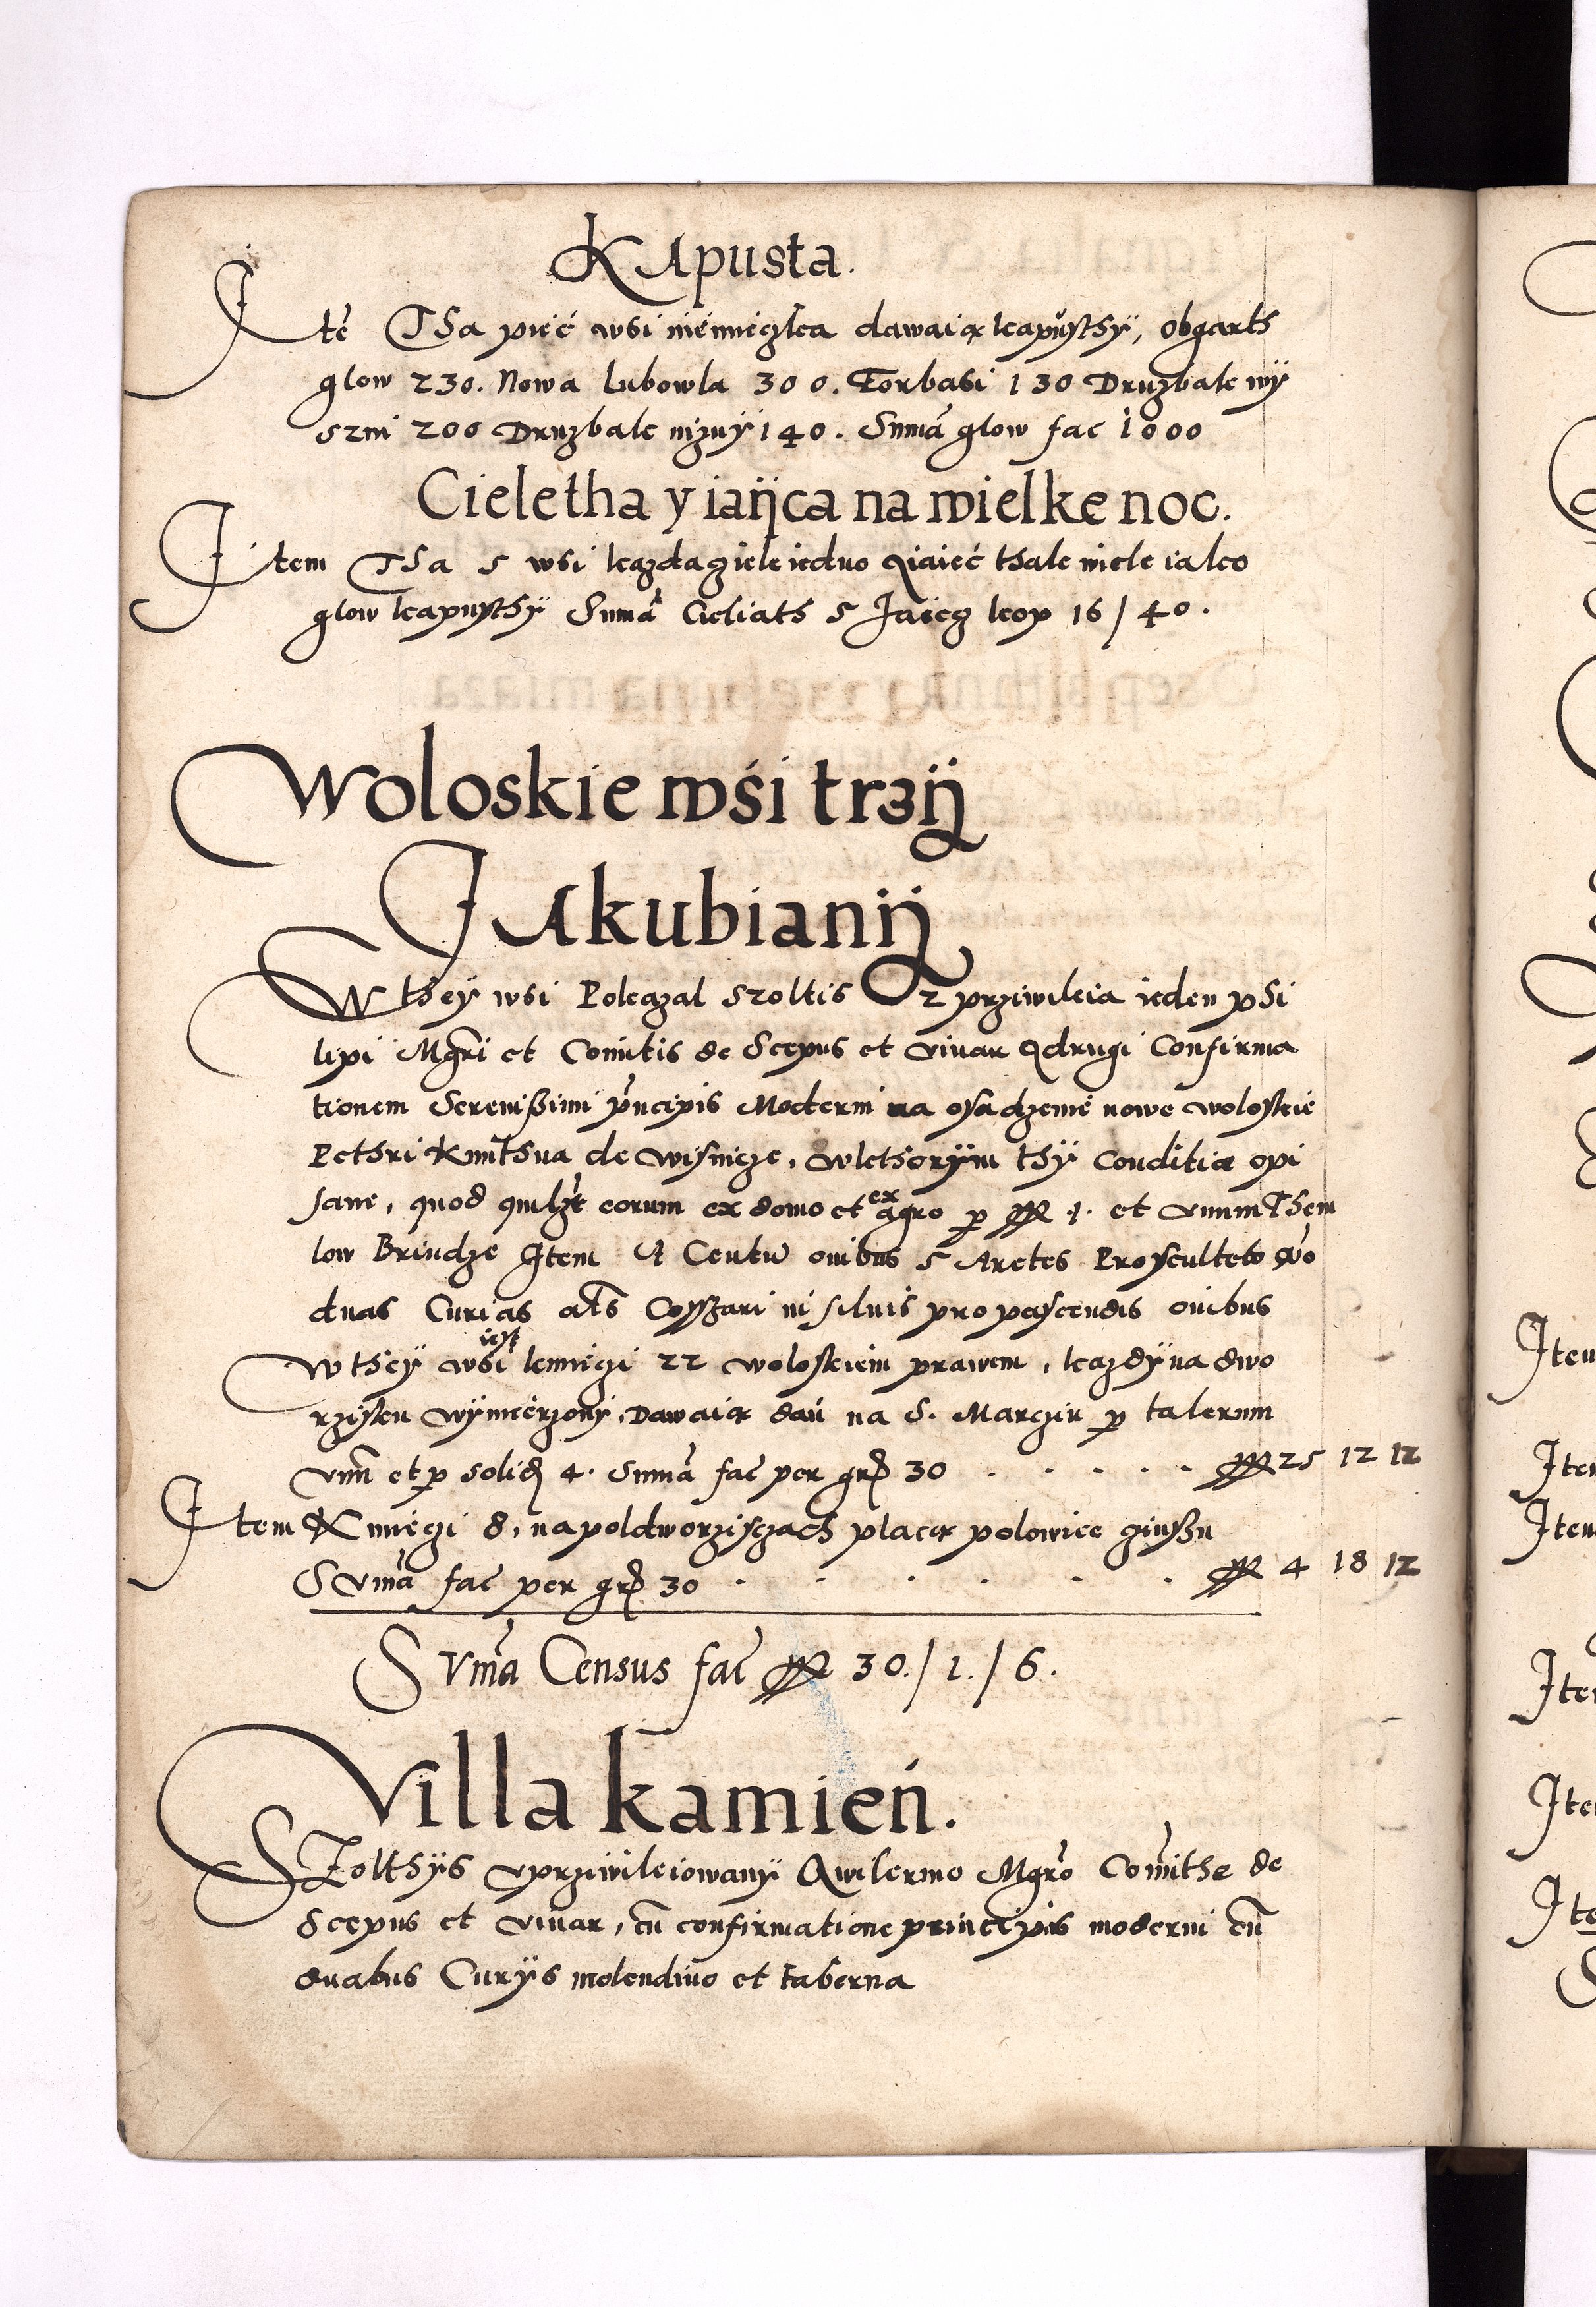 Kapusta.
Itē Tha pieć wsi niemieczka dawaią kapusthÿ, Obgarth
glow 230. Nowa Lubowla 300. Forbasi 130 Druzbak wÿ
szni 200 Druzbak niznÿ 140. Summa glow fac 1000
Cieletha y iaÿca na wielke noc.
Item Tha 5 wsi kazda ziele iedno Jaieć thak wiele iako
glow kapusthÿ Summa Cieliath 5 Jaiecz kop 16/40.
Woloskie wsi trzÿ
Jakubianÿ
W theÿ wsi Pokazal Szoltis 2 przÿwileia ieden phi
lipi Mgri et Comitis de Scepus et vivar Adrugi Confirma
tionem Sereniszimi principis Moderni na osadzenie nowe woloskie
Pethri Kmithua de Wisnicze, wkthorÿm thÿ Conditiæ opi
sane, quod quilibet eorum ex domo et ex agro p 1. et vnum Them
low Brindze Item A Centum ovibus 5 Aretes Pro sculteto vero
duas Curias als Cosszari in siluis pro pascendis ovibus
W theÿ wsi iest kmiezi 22 woloskiem prawem, kazdÿ na dwo
rzisku wÿmierzonÿ, Dawaią dań na S. Marczin p talerum
vnum et p solid 4. Summa fac per grs 30 . . . . . 25 12 12
Item Kmiezi 8, na poldworzisczach placzą polowice czinszu
Summa fac per grs 30 . . . . . . 4 18 12
Summa Census fac 30./1./6.
Villa kamień.
Szolthÿs vprziwileiowanÿ A wilermo Mgro Comithe de
Scepus et vivar, cum confirmatione principis moderni cum
duabus Curÿs molendino et taberna
Item
Item
Item
Item
Item